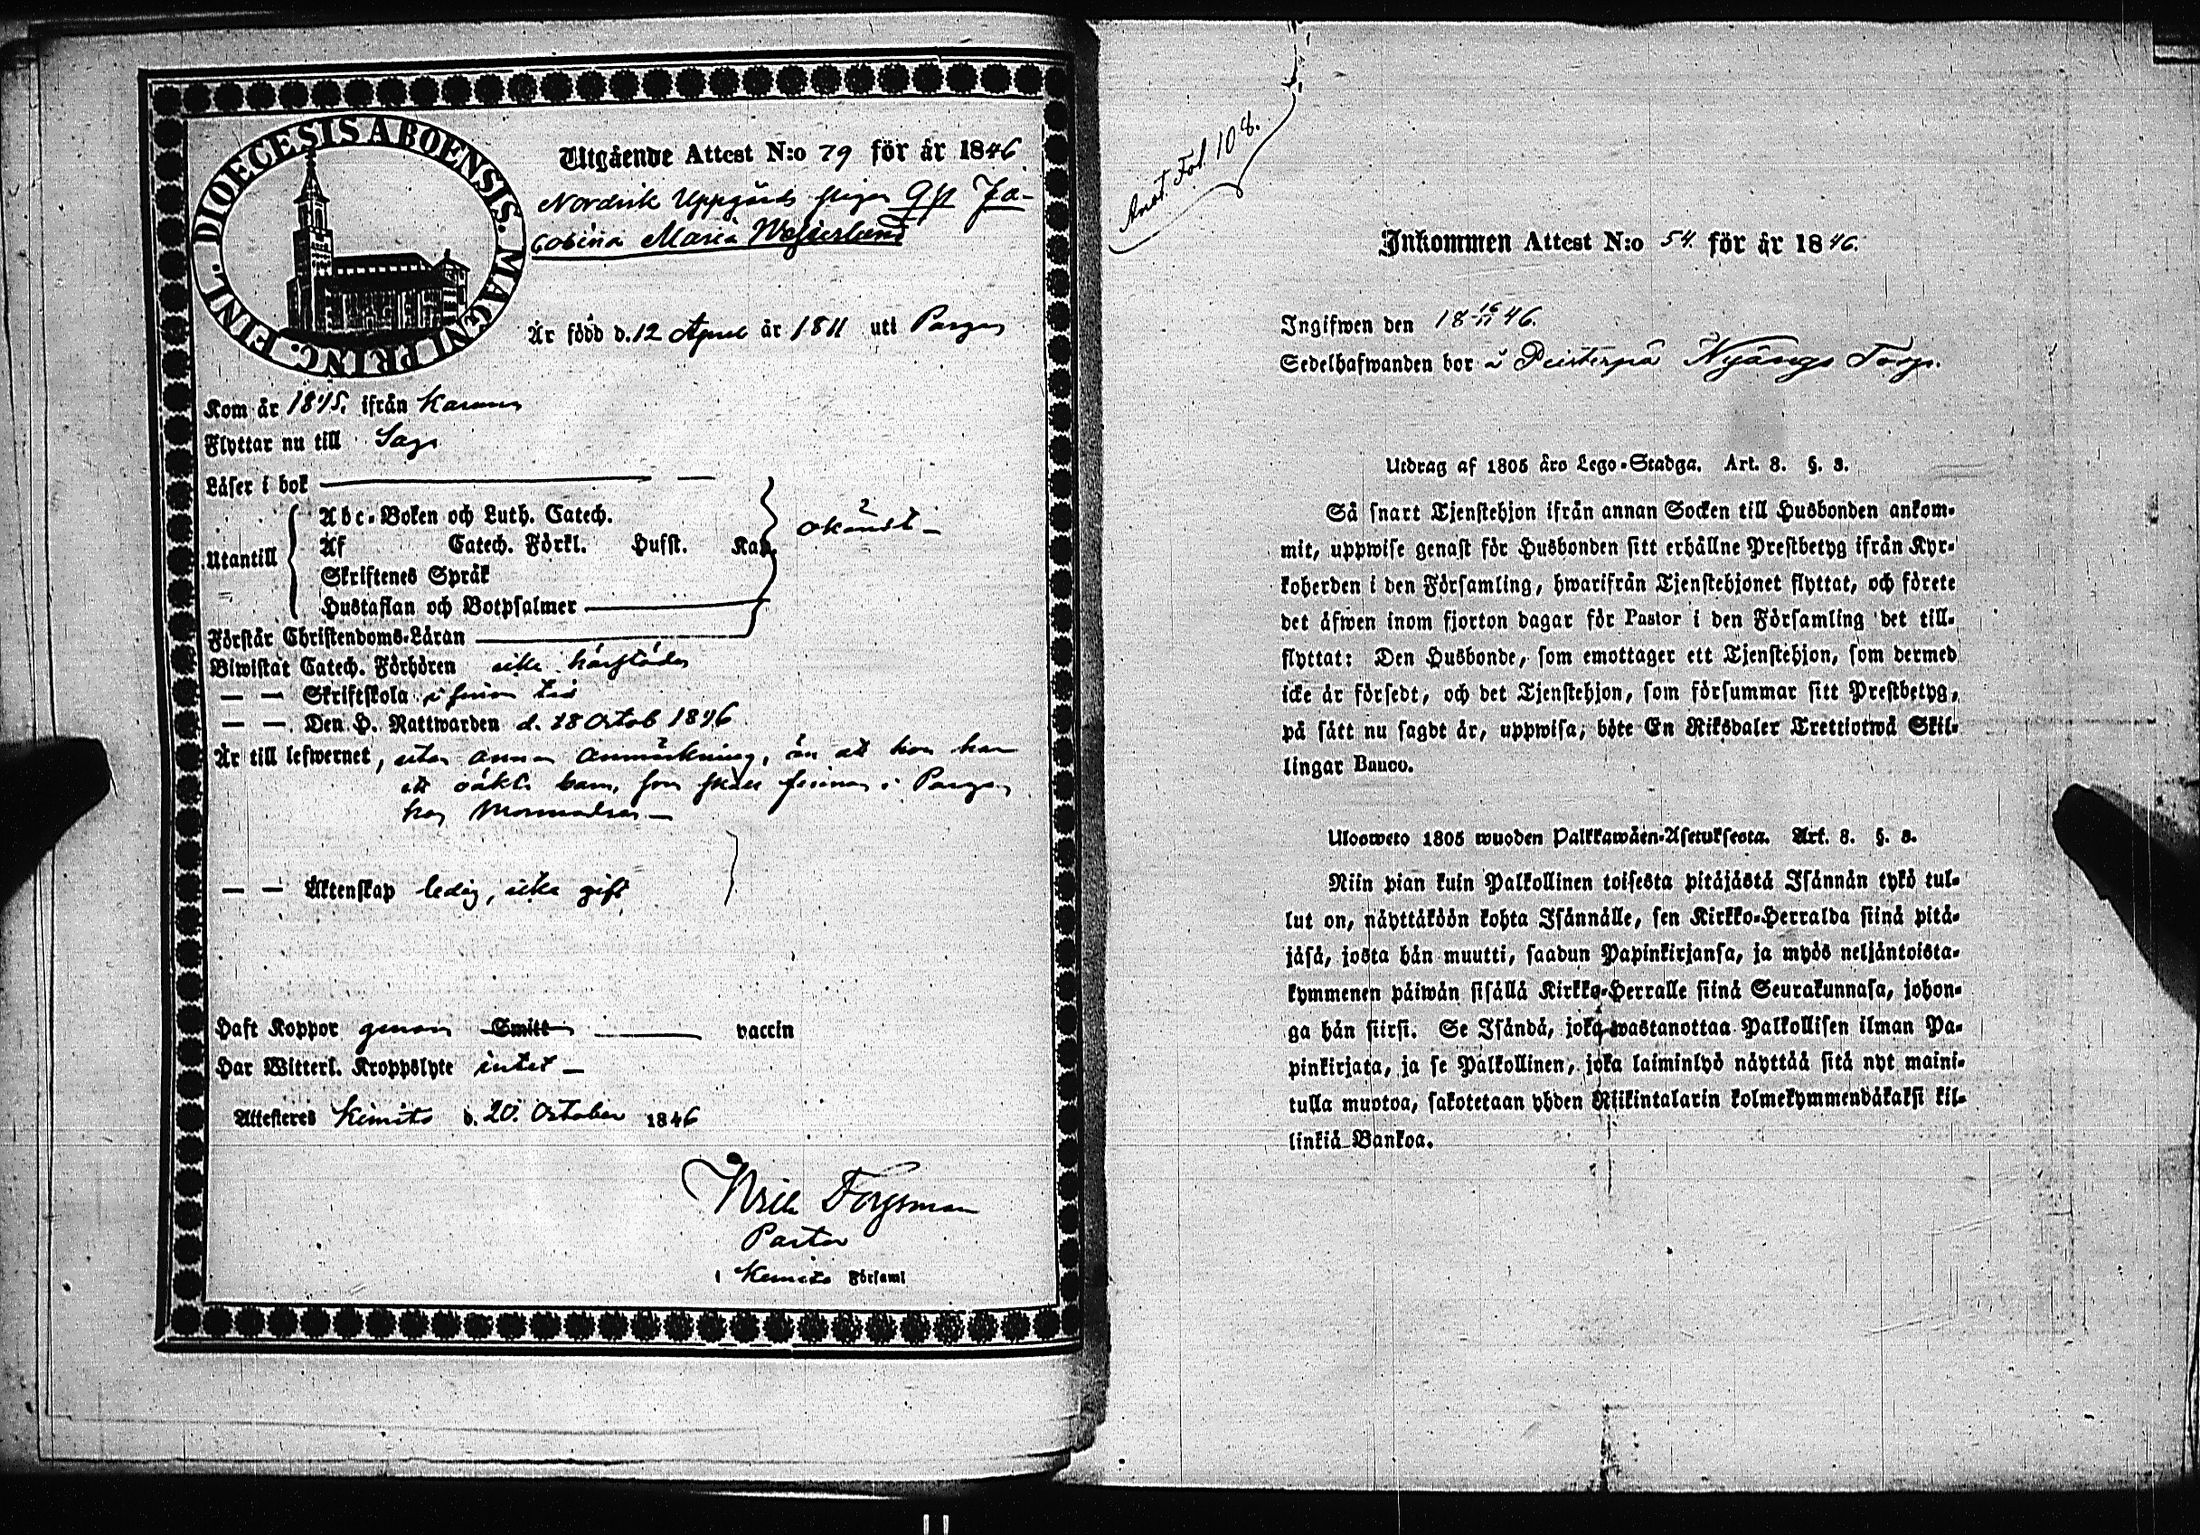 DIOECESIS ABOENSIS. MAGNI PRINC. FINL.
Utgående Attest N:o 79 för år 1846
Nordvik Uppgårds Pigan Ja-
cobina Maria Westerlund
Är född d. 12 April år 1811 uti Pargas
Kom år 1845. ifrån Karuna
Flyttar nu till Sagu
Läser i bok
Utantill
Abc-Boken och Luth. Catech.
Af Catech. Förkl. Husst. Kap.
Skriftenes Språk
Hustaflan och Botpsalmer
okändt
Förstår Christendoms-Läran
Biwistat Catech. Förhören icke härstädes
— — Skriftskola i sin tid
— — Den H. Nattwarden d. 18 Octob 1846
Är till lefwernet, utan annan anmärkning, än att hon har
ett oäkta barn, som skall finnas i Pargas
hos Mormodren —
— — Äktenskap ledig, icke gift
Haft Koppor genom Smitt vaccin
Har Witterl. Kroppslyte intet —
Attesteras Kimito d. 20. October 1846
Forssman
Pastor
i Kimito Församl
Anot. Fol. 108.
Inkommen Attest N:o 54. för år 1846.
Ingifwen den 18 16/11 46.
Sedelhafwanden bor å Peisterpä Nyängs Torp.
Utdrag af 1805 års Lego-Stadga. Art. 8. §. 3.
Så snart Tjenstehjon ifrån annan Socken till Husbonden ankom-
mit, uppwise genast för Husbonden sitt erhållne Prestbetyg ifrån Kyr-
koherden i den Församling, hwarifrån Tjenstehjonet flyttat, och förete
det äfwen inom fjorton dagar för Pastor i den Församling det till-
flyttat: Den Husbonde, som emottager ett Tjenstehjon, som dermed
icke är försedt, och det Tjenstehjon, som försummar sitt Prestbetyg,
på sätt nu sagdt är, uppwisa; böte En Riksdaler Trettiotwå Skil-
lingar Banco.
Ulosweto 1805 wuoden Palkkawäen-Asetuksesta. Art. 8. §. 3.
Niin pian kuin Palkollinen toisesta pitäjästä Isännän tykö tul-
lut on, näyttäköön kohta Isännälle, sen Kirkko-Herralda siinä pitä-
jäsä, josta hän muutti, saadun Papinkirjansa, ja myös neljäntoista-
kymmenen päiwän sisällä Kirkko-Herralle siinä Seurakunnasa, johon-
ga hän siirsi. Se Isändä, joka wastanottaa Palkollisen ilman Pa-
pinkirjata, ja se Palkollinen, joka laiminlyö näyttää sitä nyt maini-
tulla muotoa, sakotetaan yhden Riikintalarin kolmekymmendäkaksi kil-
linkiä Bankoa.